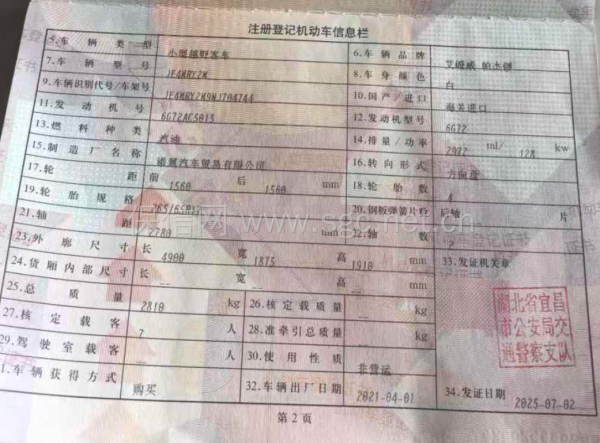 注册登记机动车信息栏
5.车辆类型 小型越野客车 6.车辆品牌
7.车辆型号 JE4MRY2M 8.车身颜色 白
9.车辆识别代号/车架号 10.国产/进口 海关进口
11.发动机号 6G72AC5815 12.发动机型号 6G72
13.燃料种类 汽油 14.排量/功率 2972 ml/ 128 kw
15.制造厂名称 汽车贸易有限公司 16.转向形式 方向盘
17.轮距 前 1560 后 1560 mm 18.轮胎数 4
19.轮胎规格 20.钢板弹簧片数 后轴 片
21.轴距 2780 mm 22.轴数 2
23.外廓尺寸 长 4900 宽 1875 高 1910 mm 33.发证机关章
24.货厢内部尺寸 长 -- 宽 -- 高 -- mm
25.总质量 2810 kg 26.核定载质量 -- kg
27.核定载客 7 人 28.准牵引总质量 -- kg
29.驾驶室载客 -- 人 30.使用性质 非营运
1.车辆获得方式 购买 32.车辆出厂日期 2021-04-01 34.发证日期 2025-07-02
湖北省宜昌
市公安局交
通警察支队
第2页